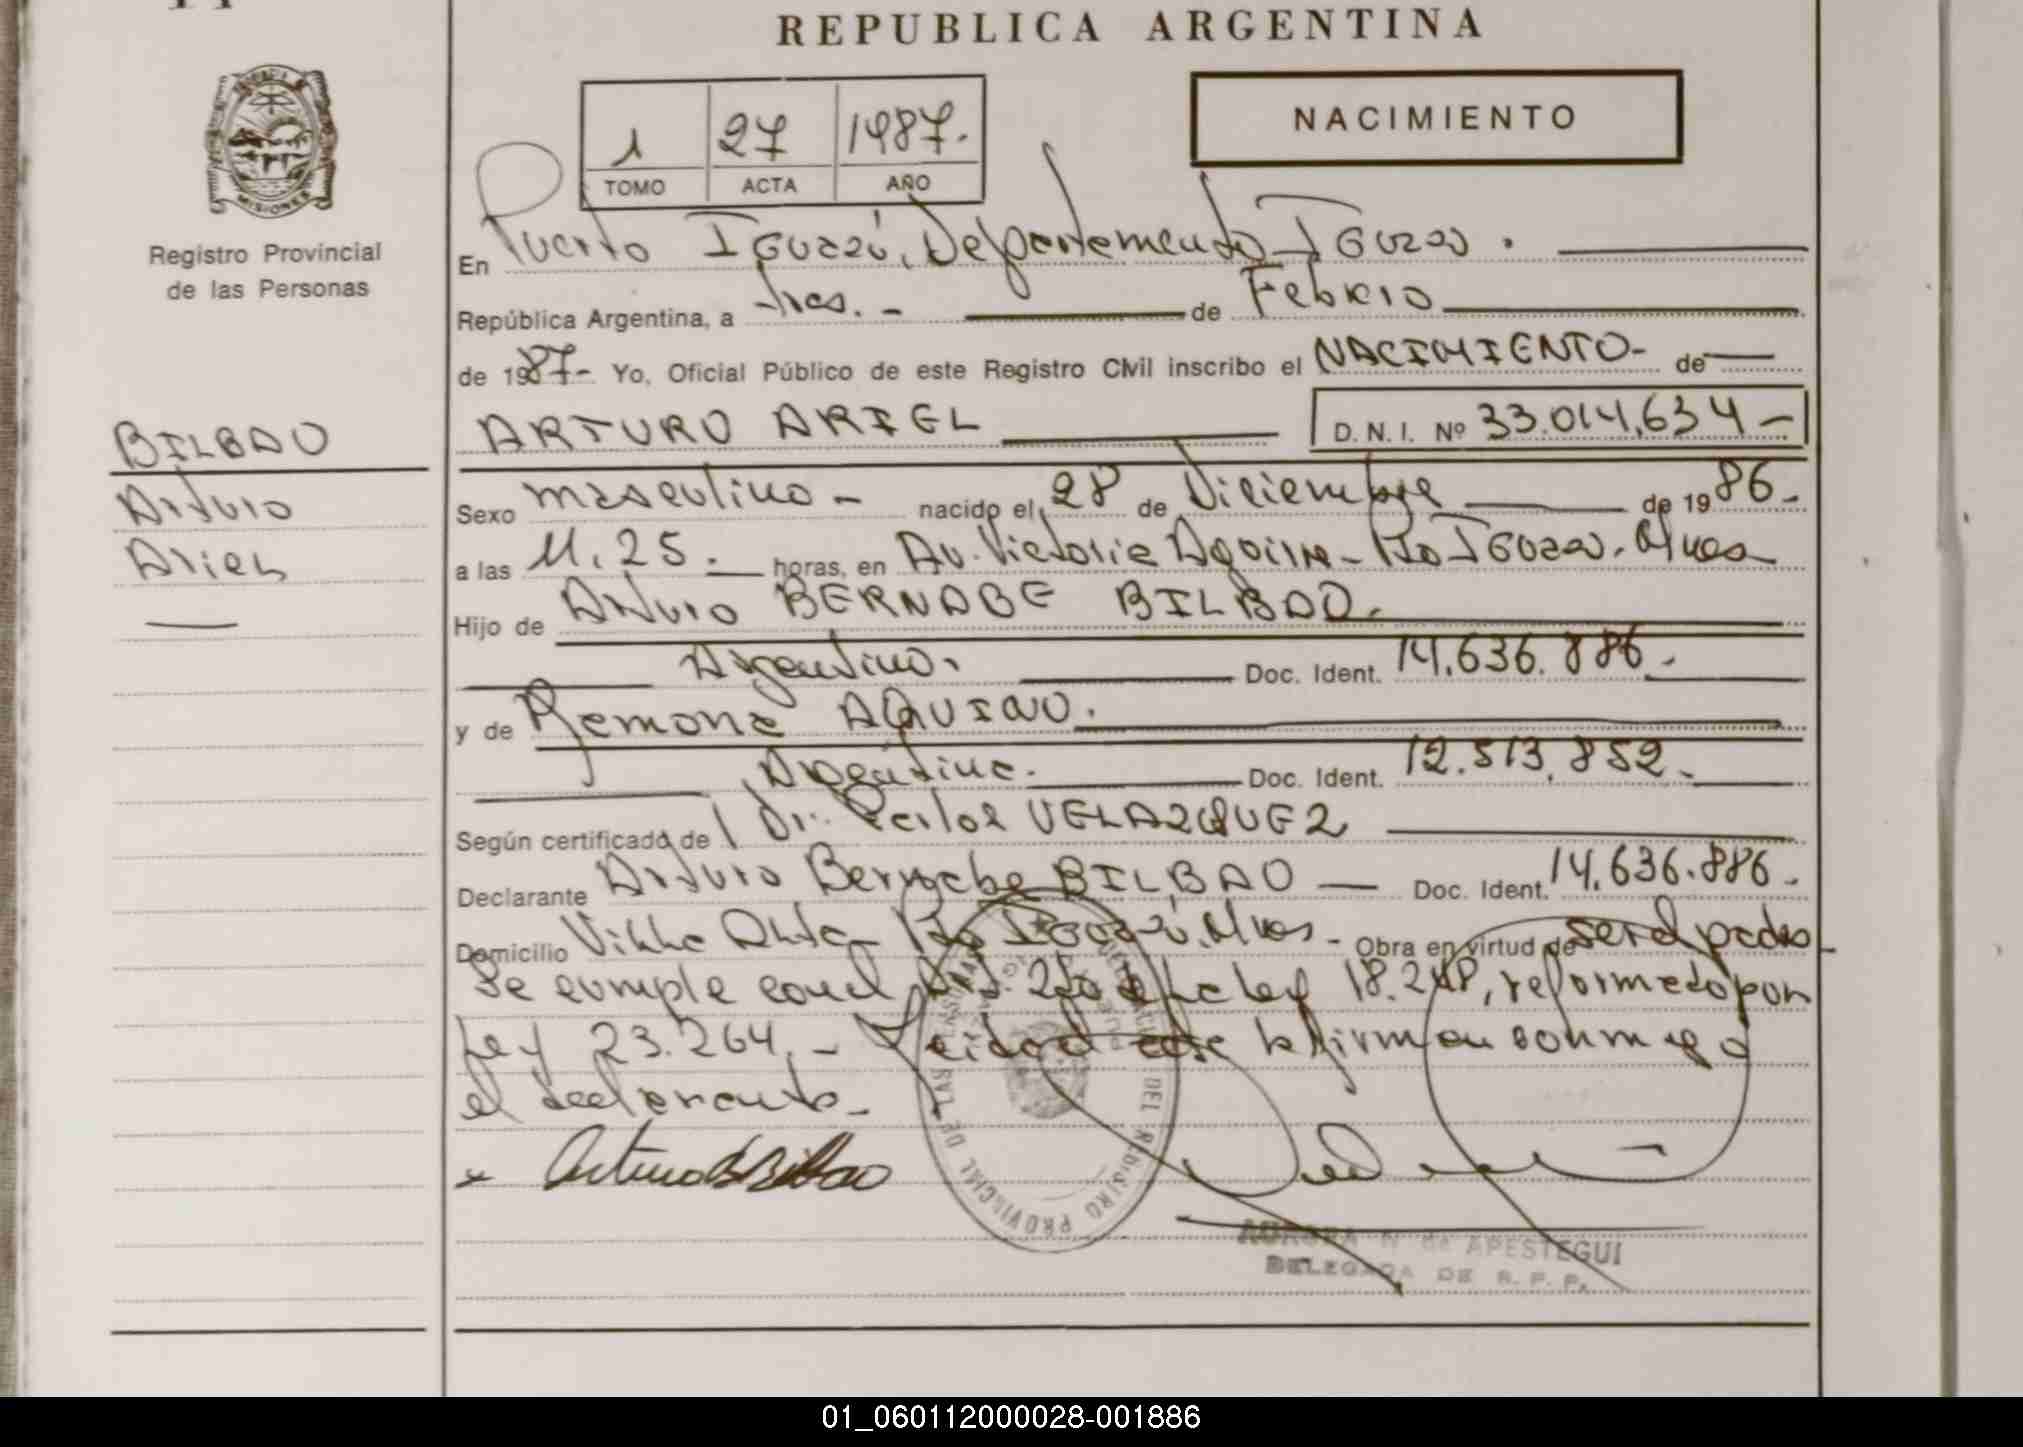 REPUBLICA ARGENTINA
MISIONES
Registro Provincial
de las Personas
1 27 1987.
TOMO ACTA AÑO
NACIMIENTO
En Puerto Iguazú, Departamento Iguazú.
República Argentina, a tres.- de Febrero
de 1987- Yo, Oficial Público de este Registro Civil inscribo el NACIMIENTO- de
BILBAO
Arturo
Ariel
ARTURO ARIEL D.N.I. Nº 33.014.634-
Sexo masculino- nacido el 28 de Diciembre de 1986.
a las 11.25. horas, en Av. Victoria Aguirre- Pto Iguazú. Mnes
Hijo de Arturo BERNABE BILBAO.
Argentino. Doc. Ident. 14.636.886.
y de Ramona AQUINO.
Argentina. Doc. Ident. 12.513.852.
Según certificado de Dr. Carlos VELAZQUEZ
Declarante Arturo Bernabe BILBAO Doc. Ident. 14.636.886.
Domicilio Villa Alta- Pto Iguazú. Mnes- Obra en virtud de ser el padre
Se cumple con el Art. de la ley 18.248, reformado por
Ley 23.264.- Leida el acta la firman conmigo
el declarante-
x Arturo B Bilbao
DEL REGISTRO PROVINCIAL DE LAS PERSONAS
AURORA N de APESTEGUI
DELEGADA DE R.P.P.
01_060112000028-001886